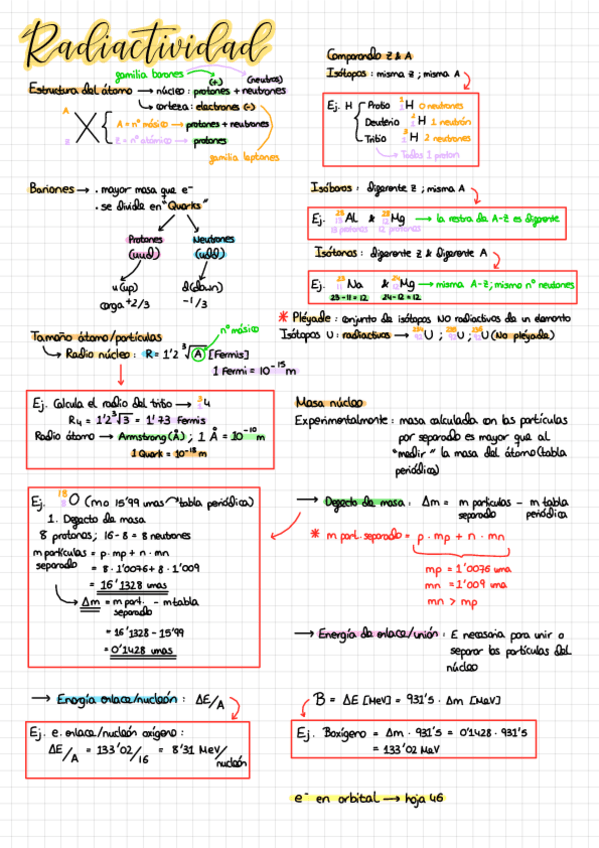 Radiactividad
gamilia barones (neutros)
(+)
Estructura del átomo → núcleo: protones + neutrones
↳ corteza: electrones (-)
A
Z
X
A = nº másico → protones + neutrones
Z = nº atómico → protones
gamilia leptones
Bariones → . mayor masa que e-
. se divida en "Quarks"
Protones Neutrones
(uud) (udd)
u(up) d(down)
carga +2/3 -1/3
Tamaño átomo/partículas
nº másico
↳ Radio núcleo: R = 1'2 ³√A [Fermis]
1 Fermi = 10⁻¹⁵ m
Ej. Calcula el radio del tritio →
R₄ = 1'2 ³√3 = 1'73 Fermis
Radio átomo → Armstrong (Å) ; 1 Å = 10⁻¹⁰ m
1 Quark = 10⁻¹⁸ m
Ej. ¹⁸₈O (mo 15'99 umas ↷ tabla periódica)
1. Degecto de masa
8 protones; 16 - 8 = 8 neutrones
m partículas = p · mp + n · mn
separado = 8 · 1'0076 + 8 · 1'009
= 16'1328 umas
↳ Δm = m part. - m tabla
separado
= 16'1328 - 15'99
= 0'1428 umas
→ Energía enlace/nucleón: ΔE/A
Ej. e. enlace/nucleón oxígeno:
ΔE/A = 133'02/16 = 8'31 MeV/nucleón
Comparando Z & A
Isótopos: misma Z; misma A
Ej. H
Protio ¹₁H 0 neutrones
Deuterio ²₁H 1 neutrón
Tritio ³₁H 2 neutrones
↳ Todos 1 proton
Isóboros: digerente Z; misma A
Ej. ²⁸₁₃AL & ²⁸₁₂Mg → la restra da A-Z es digerente
13 protones 12 protones
Isótonos: digerente Z & digerente A
Ej. ²³₁₁Na & ²⁴₁₂Mg → misma A-Z; mismo nº neutones
23-11=12 24-12=12
* Pléyade: conjunto de isótopos NO radiactivos da un elemento
Isótopos U: radiactivos → ²³⁴₉₂U ; ²³⁵₉₂U ; ²³⁸₉₂U (No pléyada)
Masa núcleo
Experimentalmente: masa calculada con las partículas
por separado es mayor que al
"medir" la masa del átomo (tabla
periódica)
→ Degecto de masa: Δm = m partículas - m tabla
separado periódica
* m part. separado = p · mp + n · mn
mp = 1'0076 uma
mn = 1'009 uma
mn > mp
→ Energía de enlace/unión: E necesaria para unir o
separar las partículas del
núcleo
B = ΔE [MeV] = 931'5 · Δm [MeV]
Ej. Boxígeno = Δm · 931'5 = 0'1428 · 931'5
= 133'02 MeV
e⁻ en orbital → hoja 46